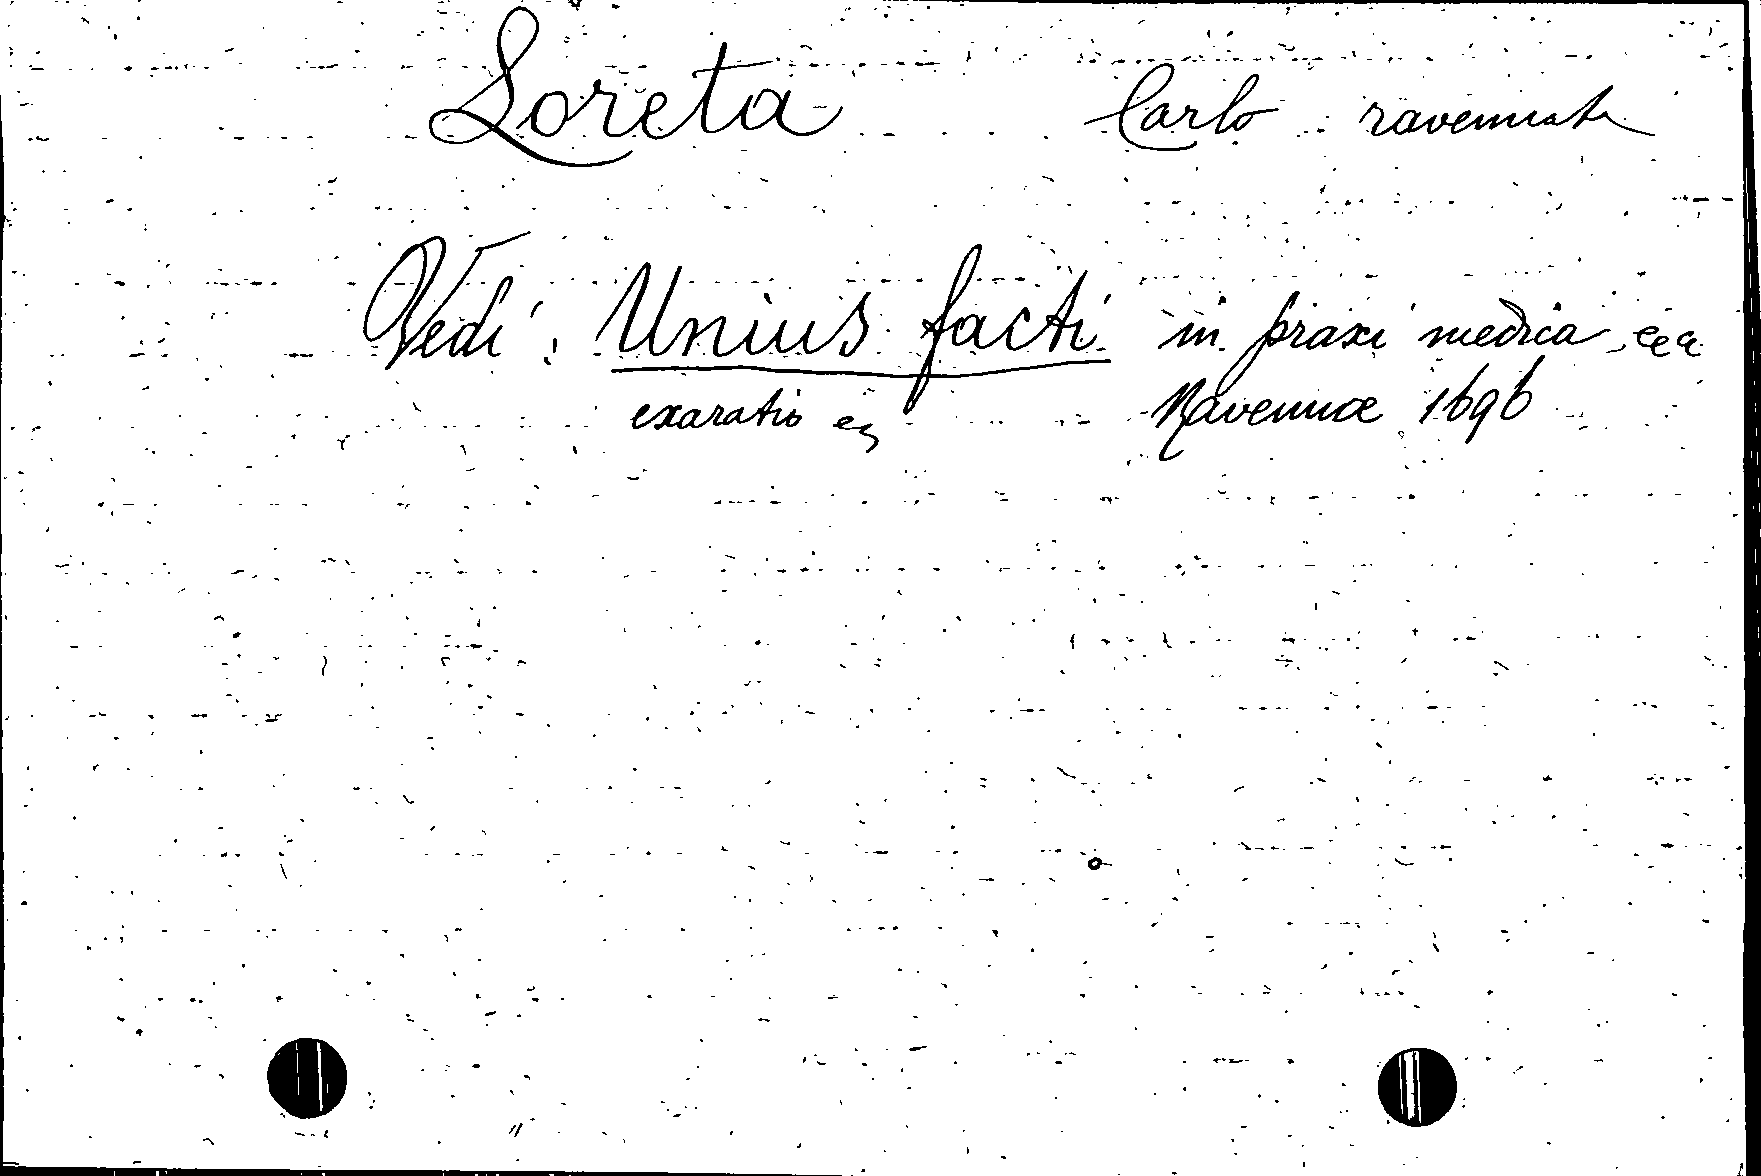 Loreta Carlo ravennate
Vedi: Unius facti in praxi medica
exaratio Ravennae 1696